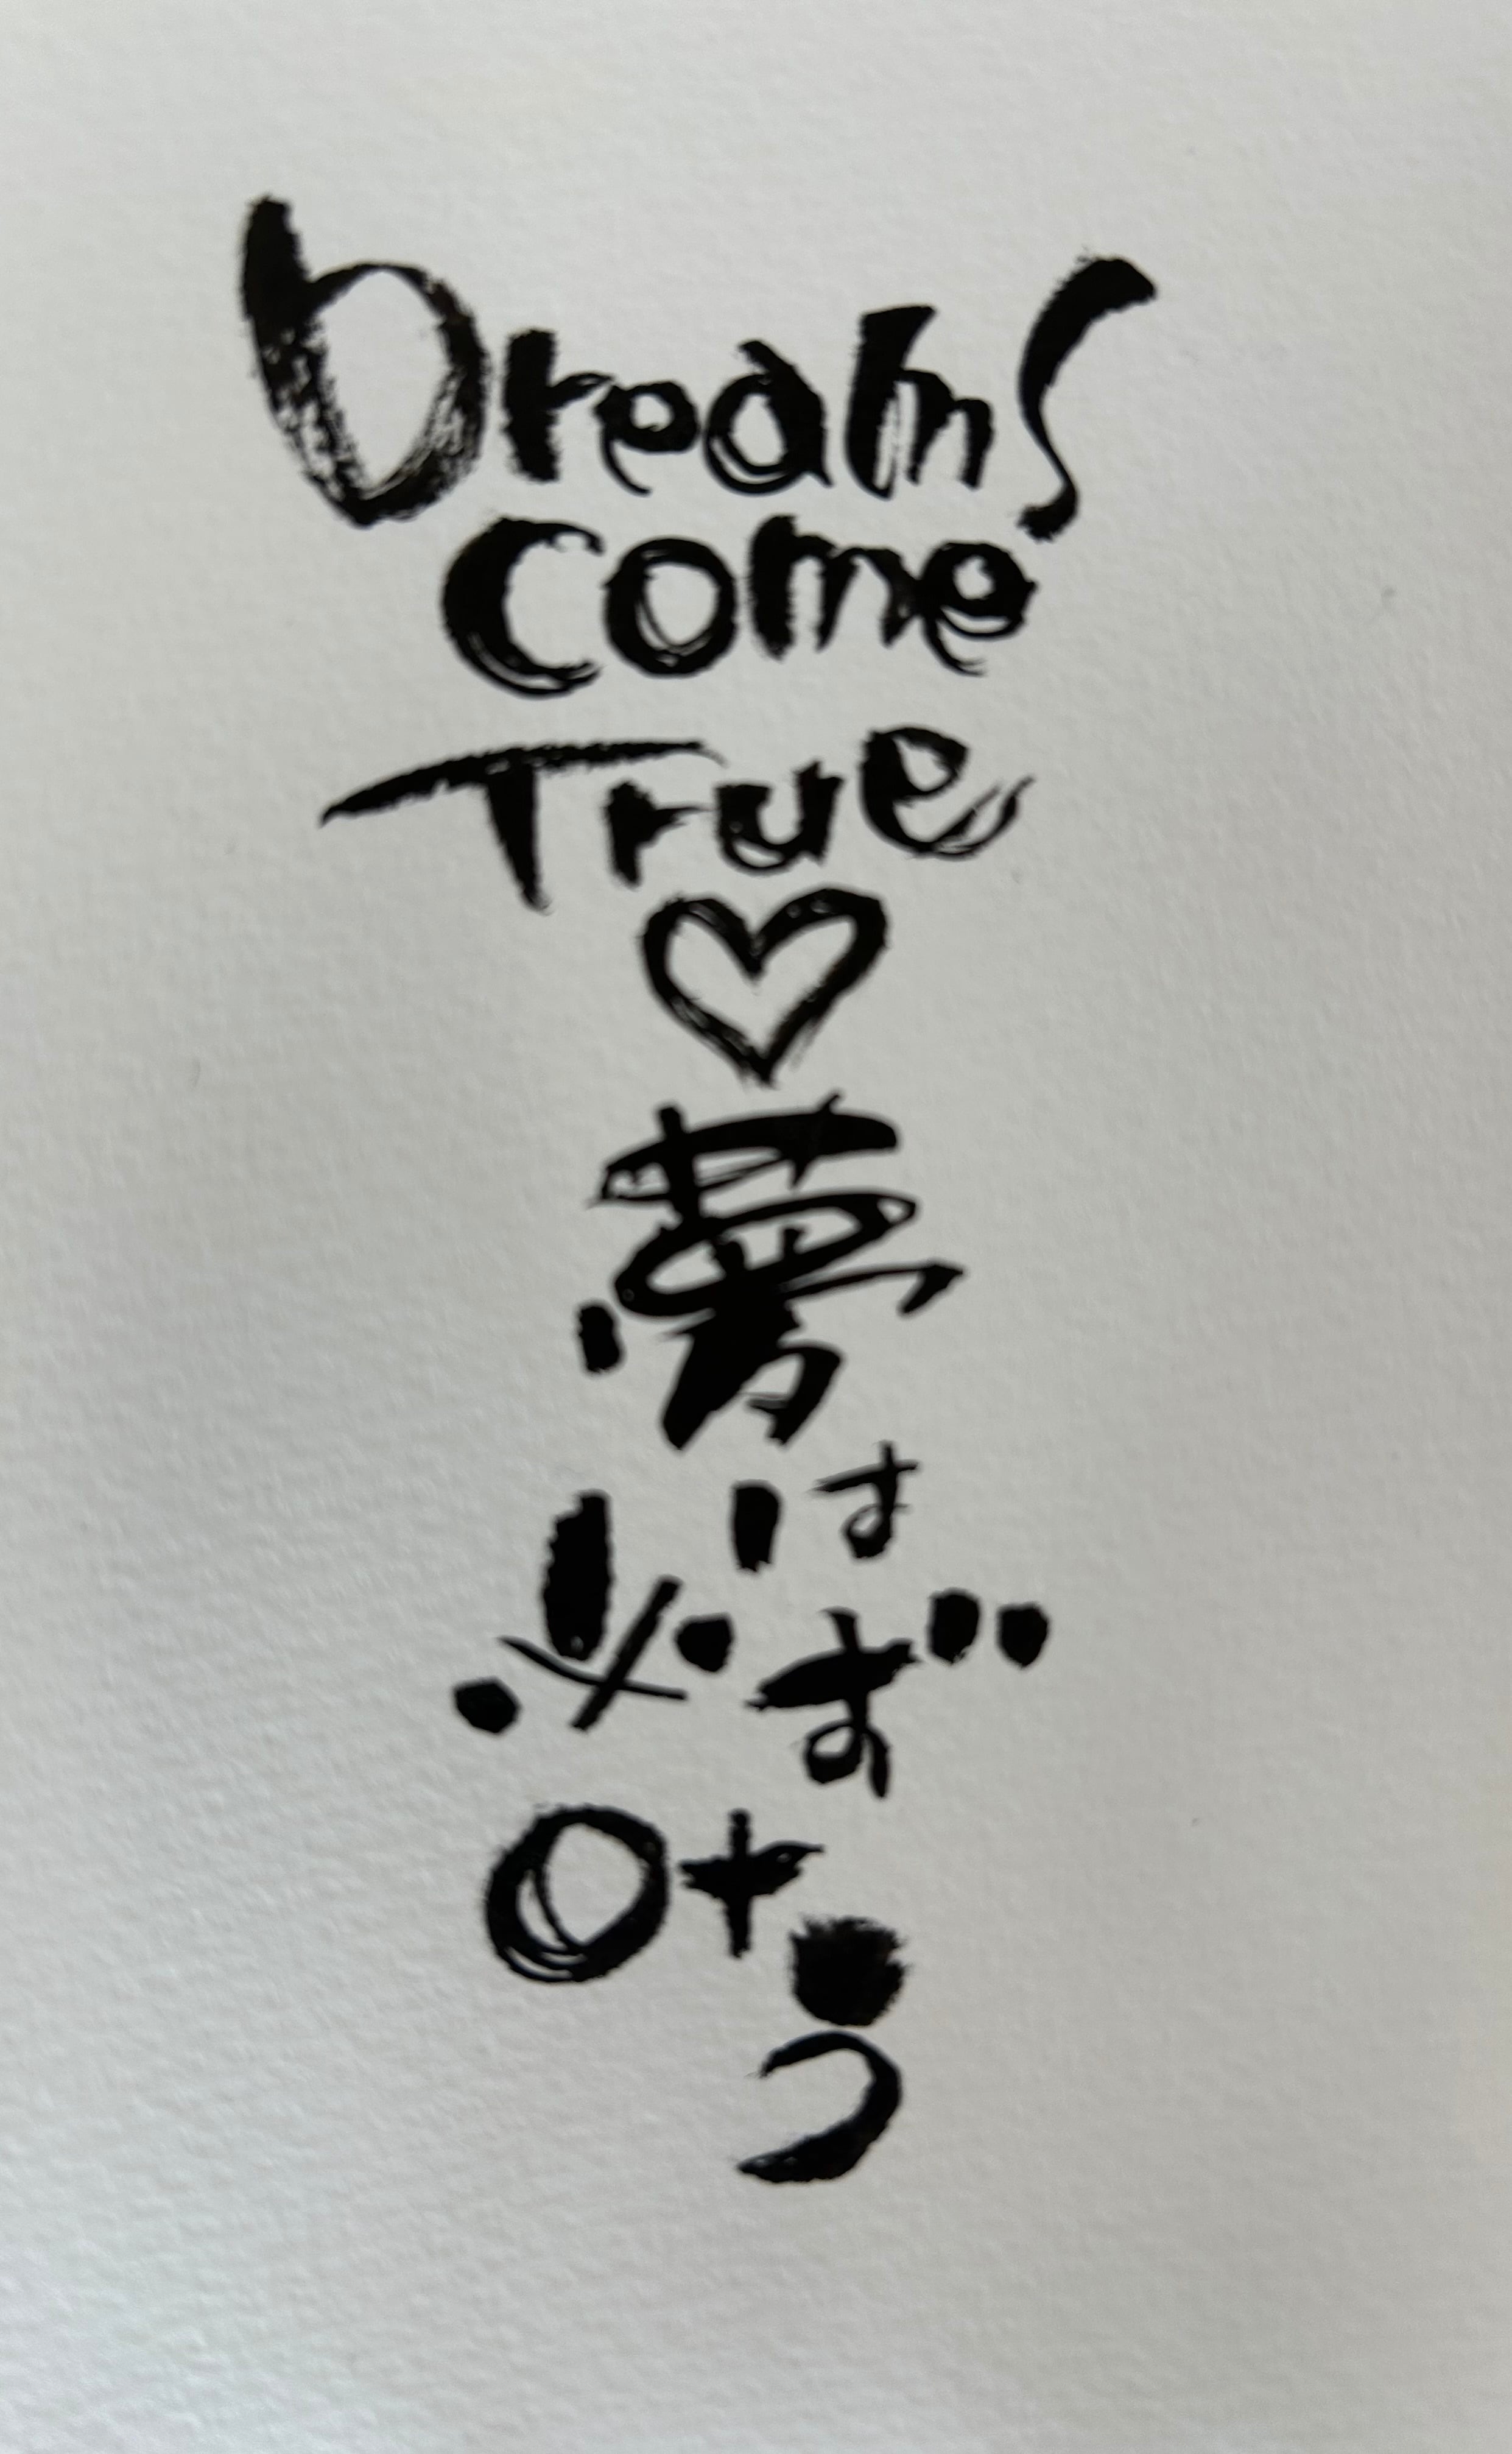 Dreams
come
True
♡
夢は
必ず
叶う